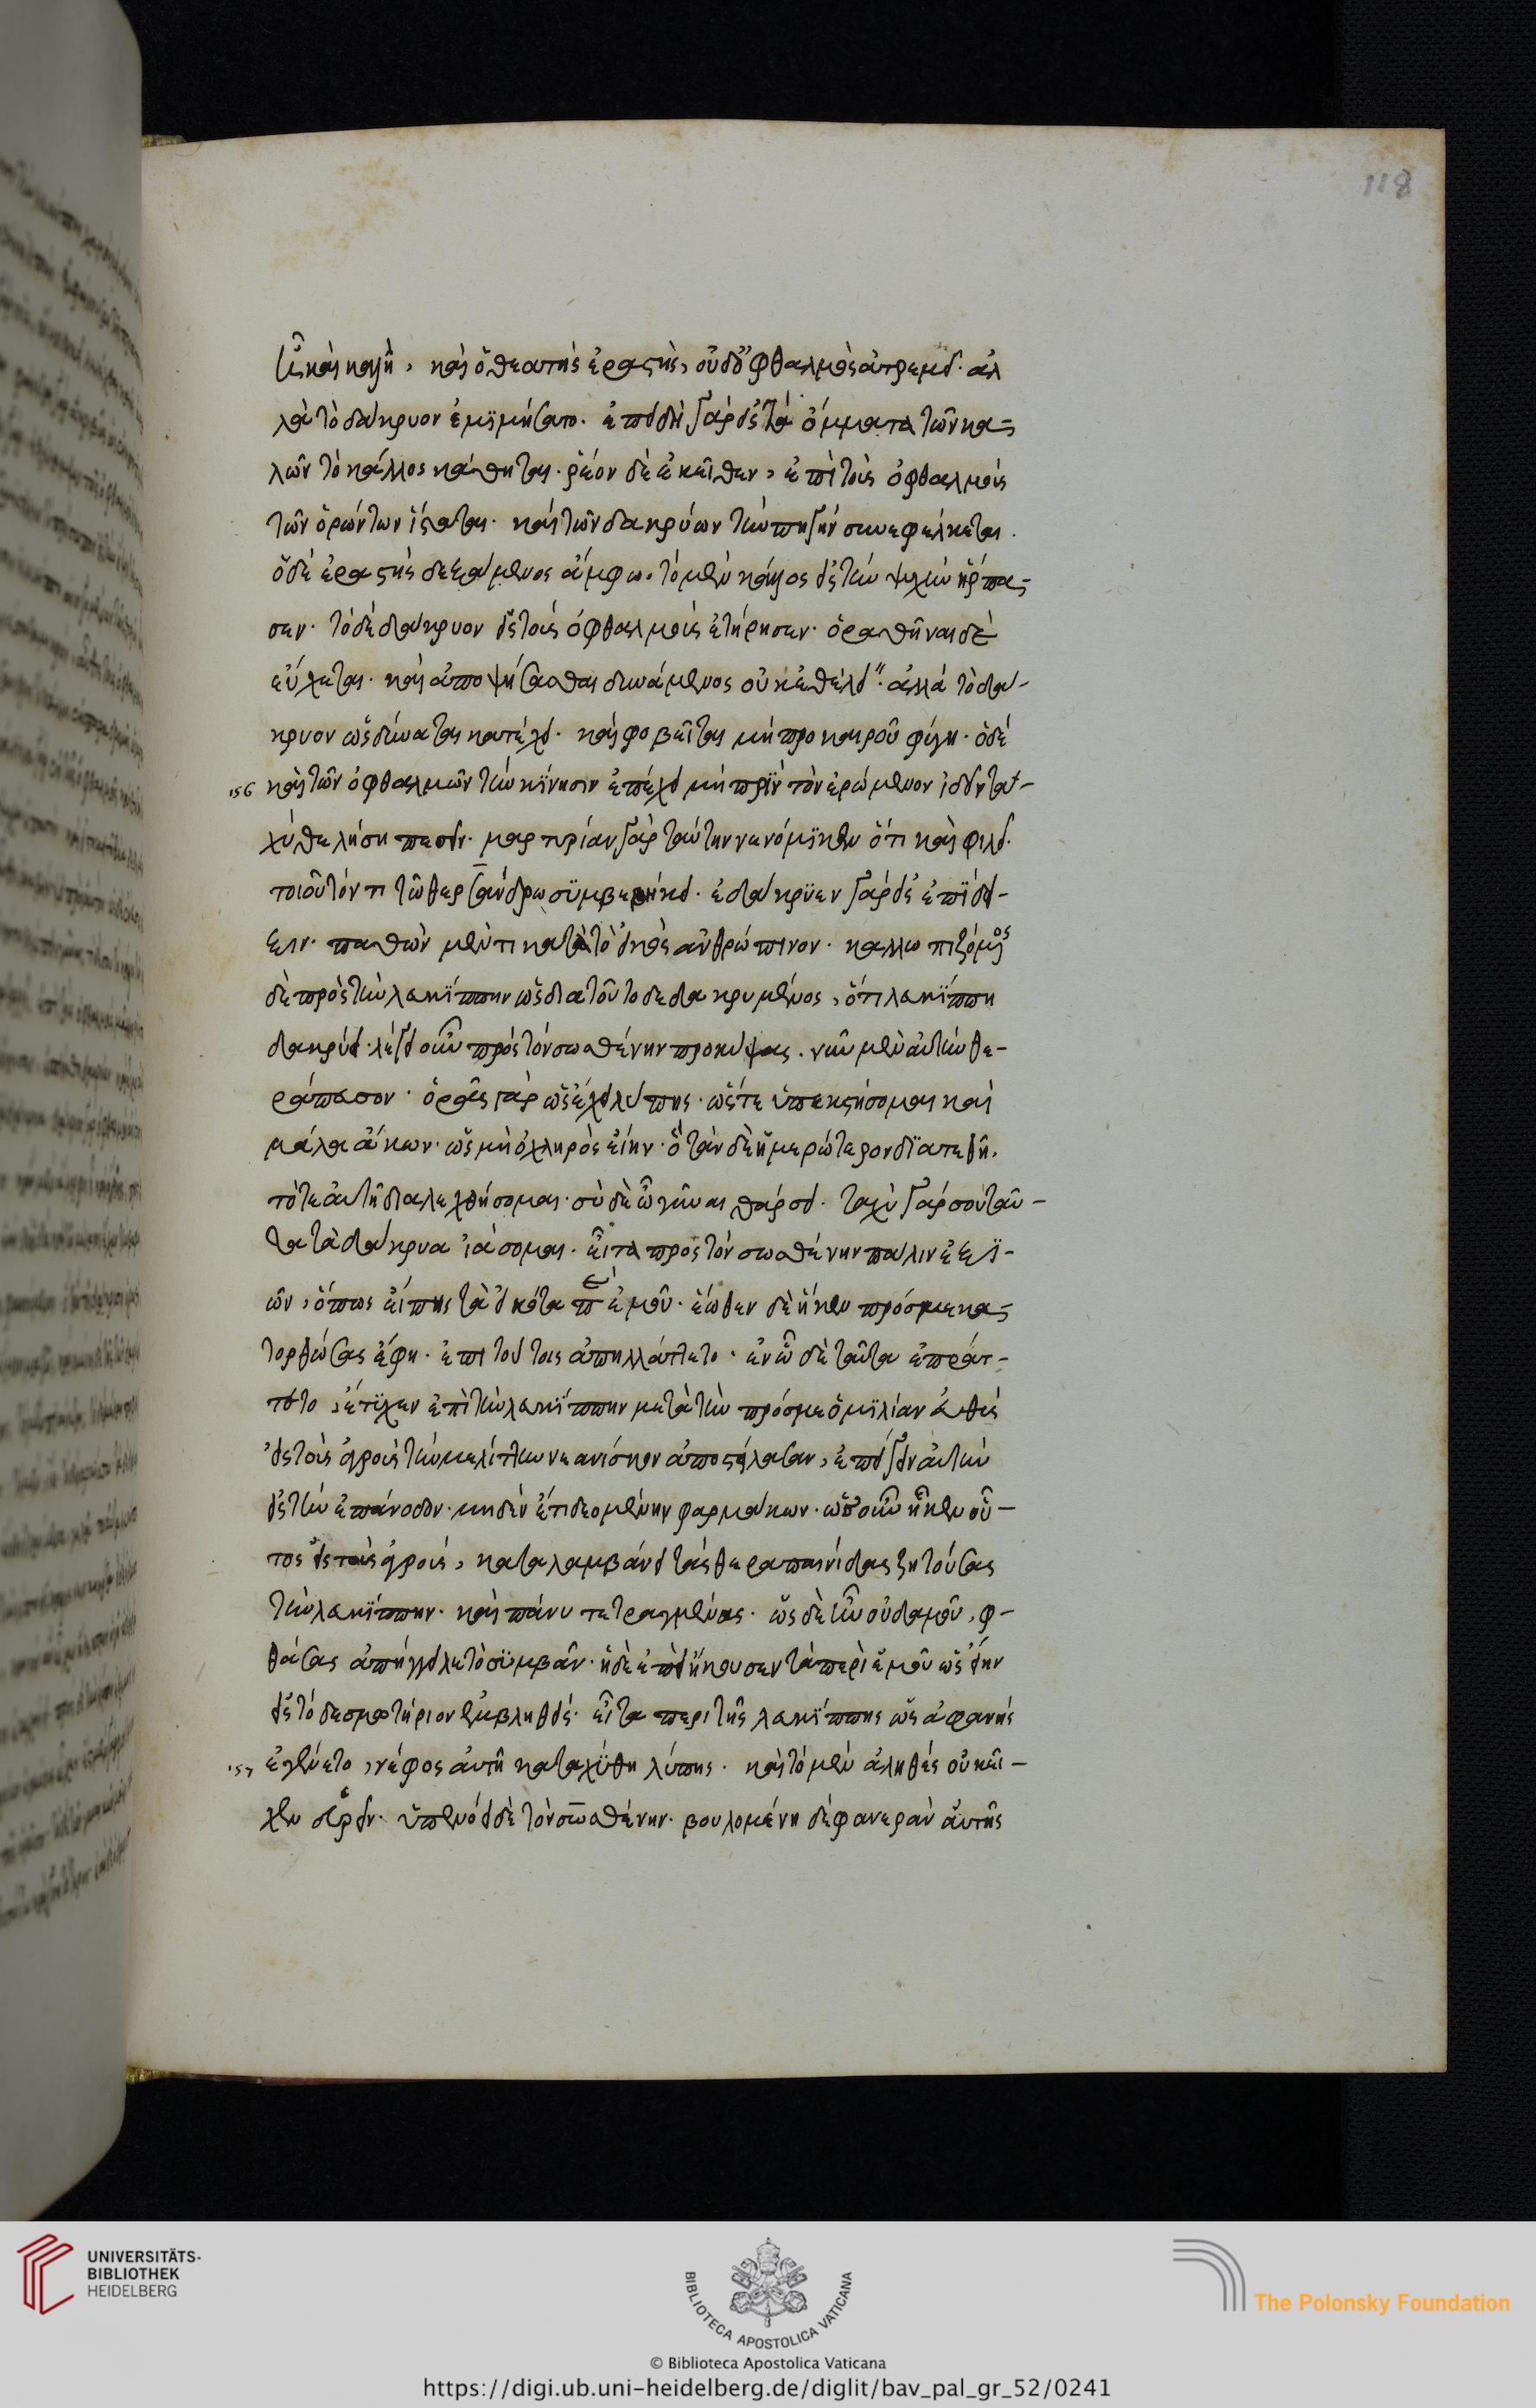 118
ἦ καὶ καλὴ, καὶ ὁ θεατὴς ἐραστὴς, οὐδ' ὀφθαλμὸς ἀτρεμεῖ· ἀλ
λὰ τὸ δάκρυον ἐμιμήσατο. ἐπειδὴ γὰρ εἰς τὰ ὄμματα τῶν κα-
λῶν τὸ κάλλος κάθηται. ῥέον δὲ ἐκεῖθεν, ἐπὶ τοὺς ὀφθαλμοὺς
τῶν ὁρώντων ἵσταται. καὶ τῶν δακρύων τὴν πηγὴν συνεφέλκεται.
ὁ δὲ ἐραστὴς δεξάμενος ἄμφω. τὸ μὲν κάλλος εἰς τὴν ψυχὴν ἥρπα-
σεν. τὸ δὲ δάκρυον εἰς τοὺς ὀφθαλμοὺς ἐτήρησεν. ὁραθῆναι δὲ
εὔχεται. καὶ ἀποψήσασθαι δυνάμενος οὐκ ἐθέλει. ἀλλὰ τὸ δά-
κρυον ὡς δύναται κατέχει. καὶ φοβεῖται μὴ πρὸ καιροῦ φύγῃ. ὁ δὲ
156 καὶ τῶν ὀφθαλμῶν τὴν κίνησιν ἐπέχει μὴ πρὶν τὸν ἐρώμενον ἰδεῖν τα-
χὺ θελήσῃ πεσεῖν. μαρτυρίαν γὰρ ταύτην νενόμικεν ὅτι καὶ φιλεῖ.
τοιοῦτόν τι τῷ θερσάνδρῳ συμβεβήκει. ἐδάκρυεν γὰρ εἰς ἐπίδει-
ξιν. παθὼν μέν τι κατὰ τὸ εἰκὸς ἀνθρώπινον. καλλωπιζόμενος
δὲ πρὸς τὴν λακίππην ὡς διὰ τοῦτο δεδακρυμένος, ὅτι λακίππη
δακρύει. λέγει οὖν πρὸς τὸν σωσθένην προκύψας. νῦν μὲν αὐτὴν θε-
ράπευσον. ὁρᾷς γὰρ ὡς ἔχει λύπης. ὥστε ὑπεκστήσομαι καὶ
μάλα ἄκων. ὡς μὴ ὀχληρὸς εἴην. ὅταν δὲ ἡμερώτερον διατεθῇ.
τότε αὐτῇ διαλεχθήσομαι. σὺ δὲ ὦ γύναι θάρσει. ταχὺ γάρ σου ταῦ-
τα τὰ δάκρυα ἰάσομαι. εἶτα πρὸς τὸν σωσθένην πάλιν ἐξι-
ών, ὅπως εἴπῃς τὰ εἰκότα περὶ ἐμοῦ. ἕωθεν δὲ ἧκεν πρός με κα-
τορθώσας ἔφη. ἐπὶ τούτοις ἀπηλλάττετο. ἐν ᾧ δὲ ταῦτα ἐπράτ-
τετο, ἔτυχεν ἐπὶ τὴν λακίππην μετὰ τὴν πρός με ὁμιλίαν εὐθὺς
εἰς τοὺς ἀγροὺς τὴν μελίττην νεανίσκον ἀποστείλασαν, ἐπείγειν αὐτὴν
εἰς τὴν ἐπάνοδον. μηδὲν ἔτι δεομένην φαρμάκων. ὡς οὖν ἧκεν οὗ-
τος εἰς τοὺς ἀγρούς, καταλαμβάνει τὰς θεραπαινίδας ζητούσας
τὴν λακίππην. καὶ πάνυ τεταραγμένας. ὡς δὲ ἦν οὐδαμοῦ, φ-
θάσας ἀπήγγελε τὸ συμβάν. ἡ δὲ ἐπεὶ ἤκουσεν τὰ περὶ ἐμοῦ ὡς εἴην
εἰς τὸ δεσμωτήριον ἐμβληθείς. εἶτα περὶ τῆς λακίππης ὡς ἀφανὴς
157 ἐγένετο, νέφος αὐτῇ κατεχύθη λύπης. καὶ τὸ μὲν ἀληθὲς οὐκ εἶ-
χεν εὑρεῖν. ὑπενόει δὲ τὸν σωσθένην. βουλομένη δὲ φανερὰν αὐτῆς
UNIVERSITÄTS-
BIBLIOTHEK
HEIDELBERG
BIBLIOTECA APOSTOLICA VATICANA
The Polonsky Foundation
© Biblioteca Apostolica Vaticana
https://digi.ub.uni-heidelberg.de/diglit/bav_pal_gr_52/0241